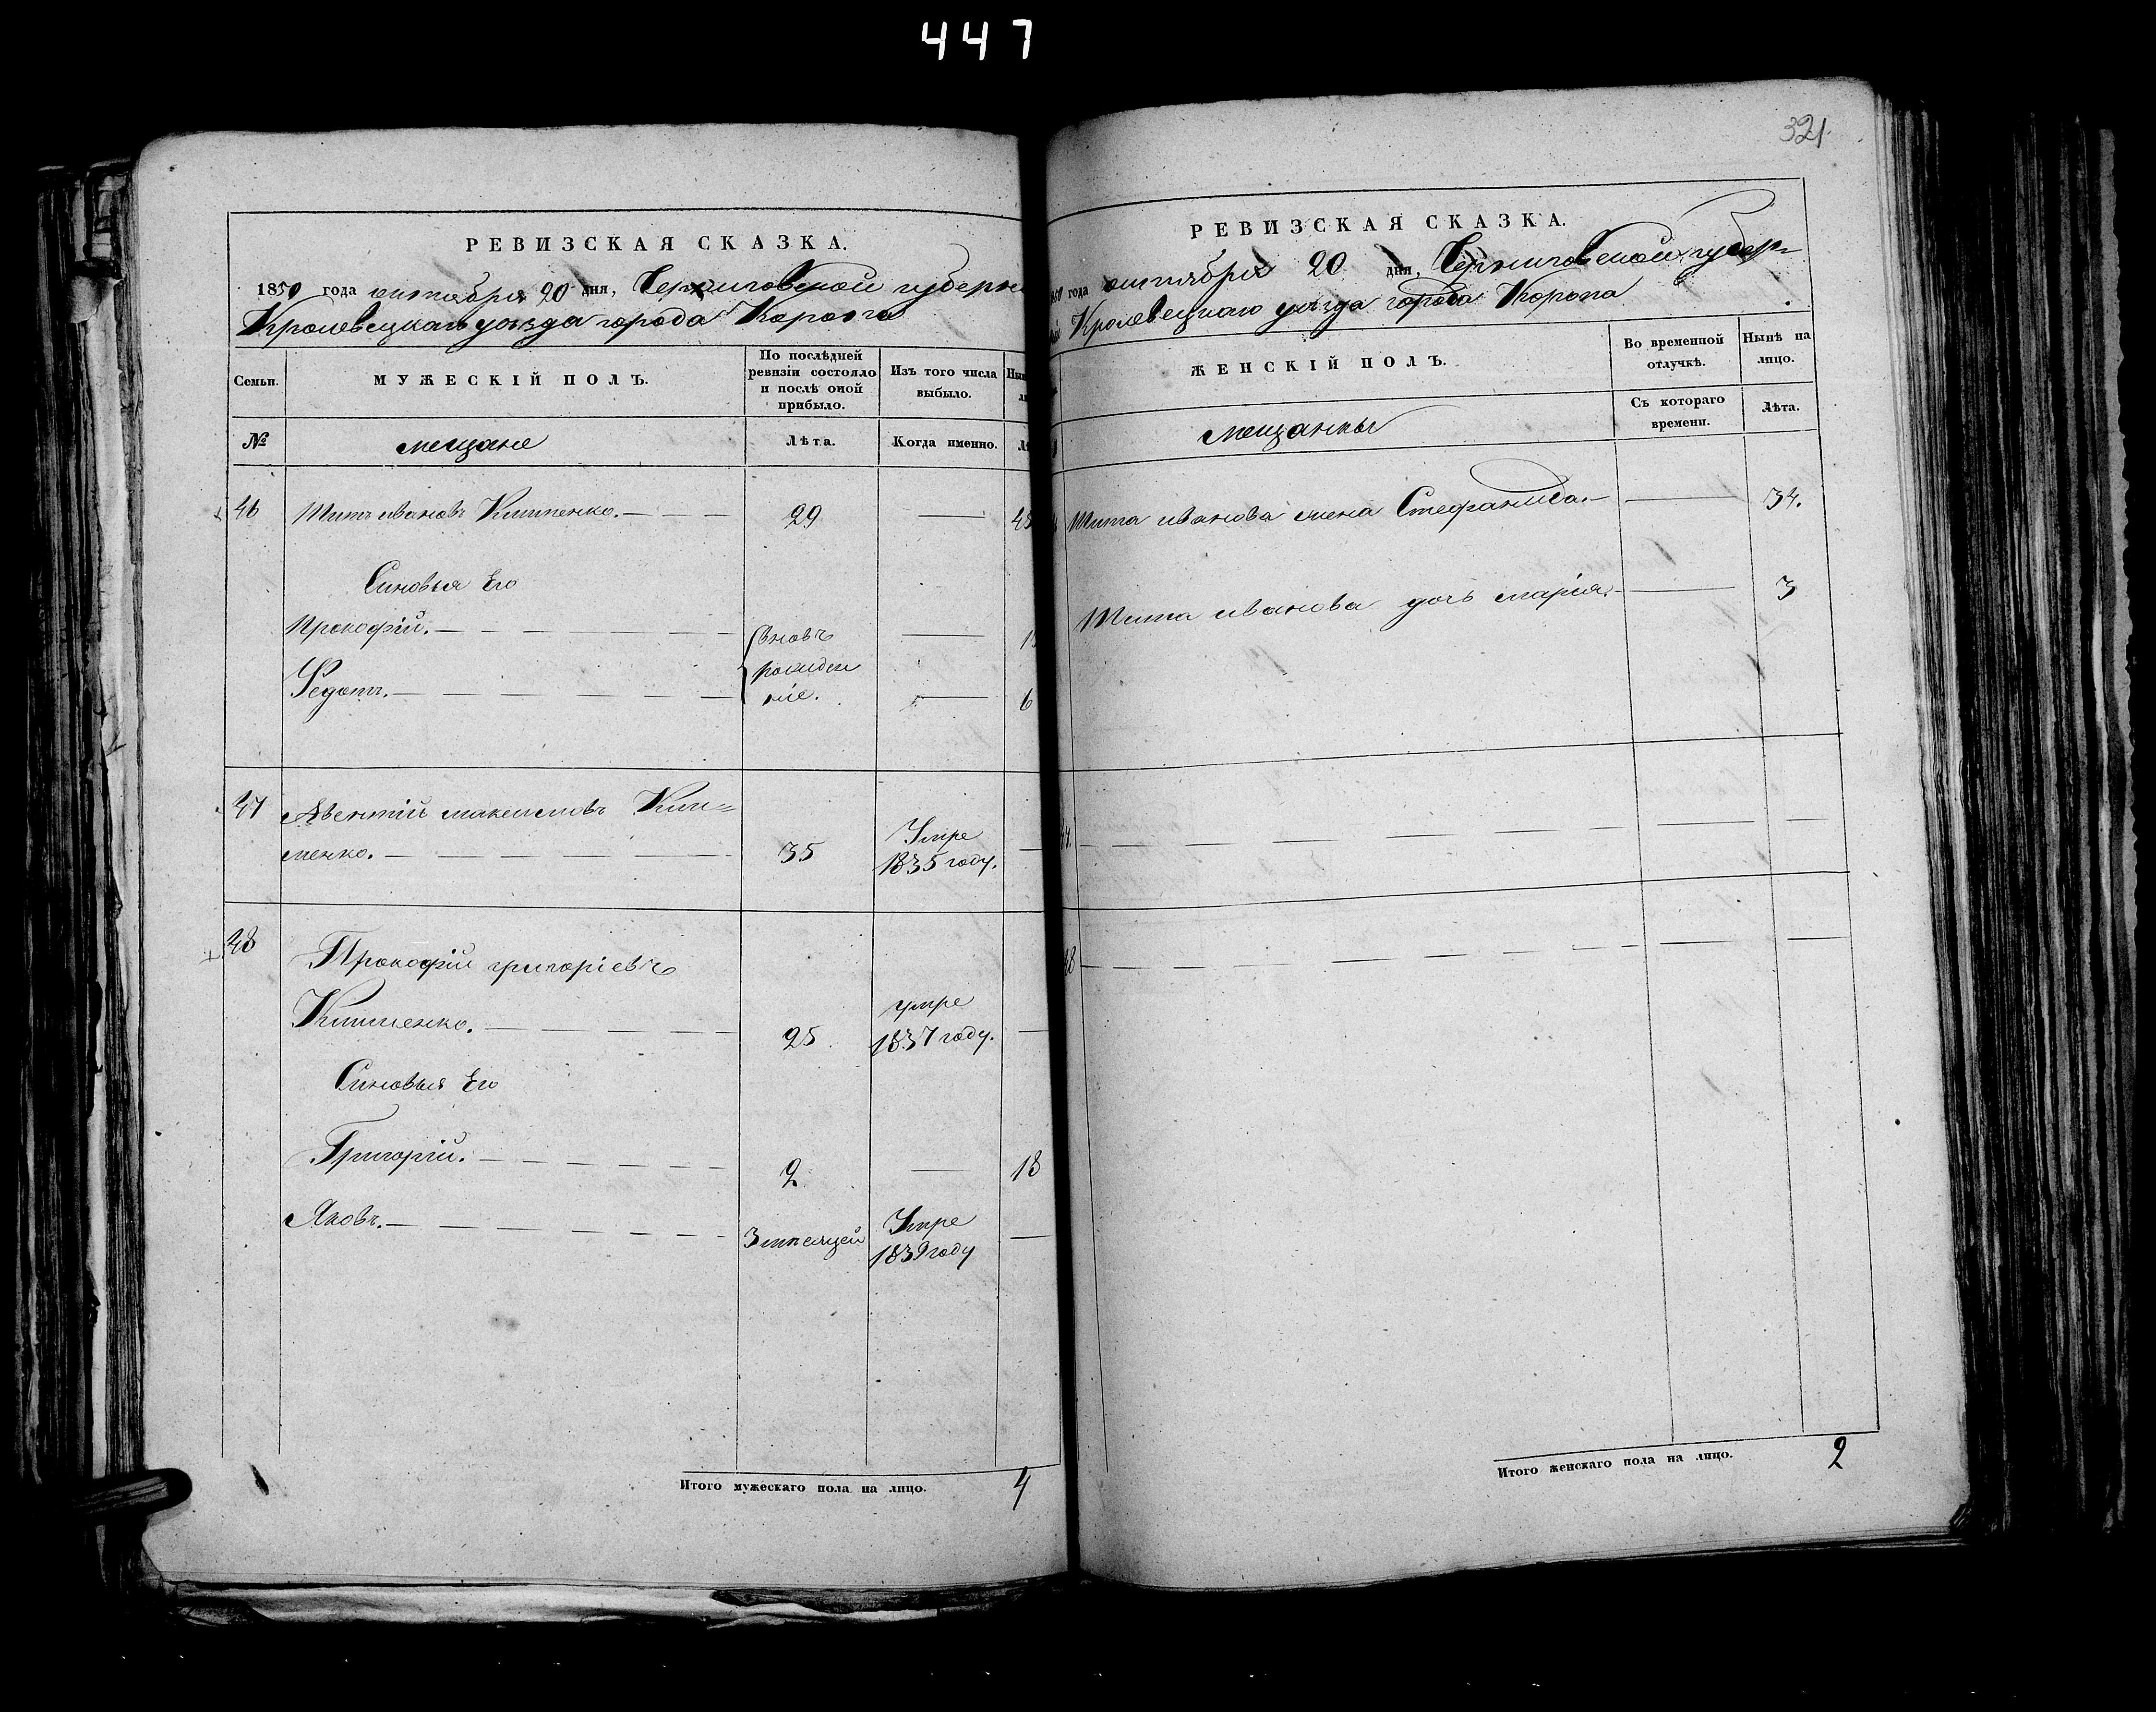 447
РЕВИЗСКАЯ СКАЗКА.
1850 года октября 20 дня, Черниговской губерн
Кролевецкаго уезда города Коропа
Семьи.
МУЖЕСКІЙ ПОЛЪ.
По послѣдней ревизіи состояло и послѣ оной прибыло.
Изъ того числа выбыло.
№
мещане
Лѣта.
Когда именно.
46 Титъ ивановъ 29
Синовья Его
Прокофій.
вновь
рожден
ніе.
Федотъ. 6
47 Авентій максимовъ
менко. 35 Умре
1835 году.
48 Прокофій григоріевъ
25 умре
1837 году.
Синовья Его
Григорій. 2 18
Яковъ. 3 месяцей Умре
1839 году
Итого мужескаго пола на лицо. 4
321
РЕВИЗСКАЯ СКАЗКА.
года октября 20 дня, Черниговской губер-
Кролевецкаго уезда города Коропа
ЖЕНСКІЙ ПОЛЪ.
Во временной отлучкѣ.
Нынѣ на лицо.
Съ котораго времени.
Лѣта.
мещанки
Тита иванова жена Стефанида. 34.
Тита иванова дочь марія. 3
Итого женскаго пола на лицо. 2